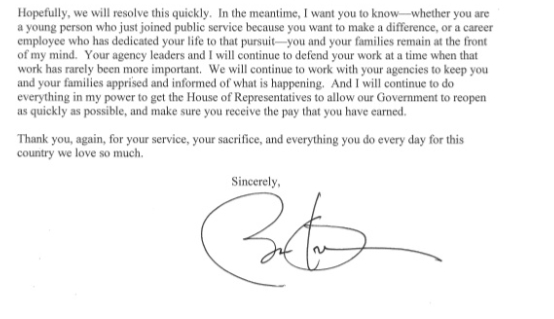 Hopefully, we will resolve this quickly.  In the meantime, I want you to know—whether you are
a young person who just joined public service because you want to make a difference, or a career
employee who has dedicated your life to that pursuit—you and your families remain at the front
of my mind.  Your agency leaders and I will continue to defend your work at a time when that
work has rarely been more important.  We will continue to work with your agencies to keep you
and your families apprised and informed of what is happening.  And I will continue to do
everything in my power to get the House of Representatives to allow our Government to reopen
as quickly as possible, and make sure you receive the pay that you have earned.
Thank you, again, for your service, your sacrifice, and everything you do every day for this
country we love so much.
Sincerely,